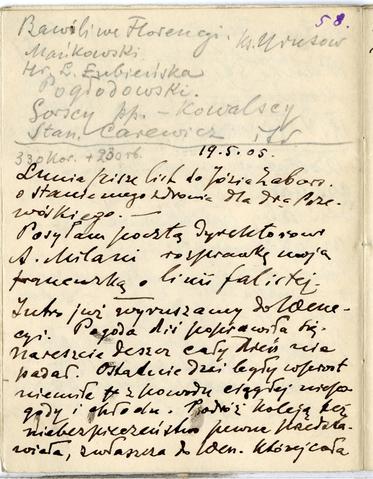 58.
Bawili we Florencyi. ks. Urusow
Mańkowski
Hr. L. Łubieńska
Pogłodowski.
Gorscy pp. – Kowalscy
Stan. Carewicz itd
330 Kor. + 230 rb.
19.5.05.
Lunia pisze list do Józia Zabors.
o stanie mego zdrowia dla dra Prze-
wóskiego. —
Posyłam pocztą dyrektorowi
A. Milani rozprawkę moją
francuzką o linii falistej.
Jutro już wyruszamy do Wene-
cyi. Pogoda dziś poprawiła się.
nareszcie deszcz cały dzień nie
padał. Ostatnie dni były wprost
niemiłe z powodu ciągłej niepo-
gody i chłodu. Podróż koleją też
niebezpieczeństwa pewne przedsta-
wiała, zwłaszcza do Wen. której cała